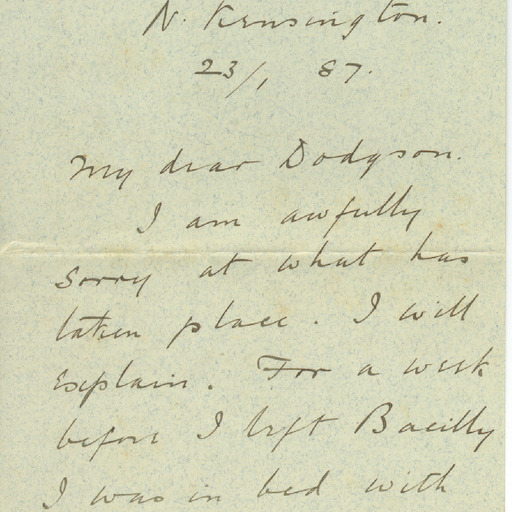 N. Kensington.
23/1 87.
My dear Dodgson.
I am awfully
sorry at what has
taken place. I will
explain. For a week
before I left Bacilly
I was in bed with